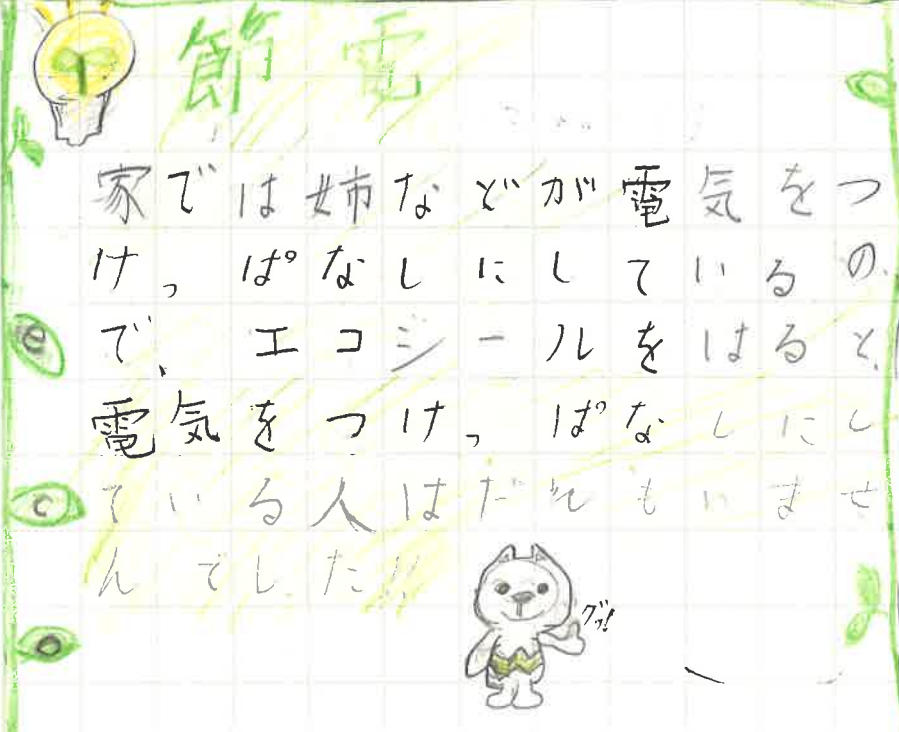 節電
家では姉などが電気をつ
けっぱなしにしているの
で、エコシールをはると、
電気をつけっぱなしにし
ている人はだれもいませ
んでした!!
グッ!
e
c
o